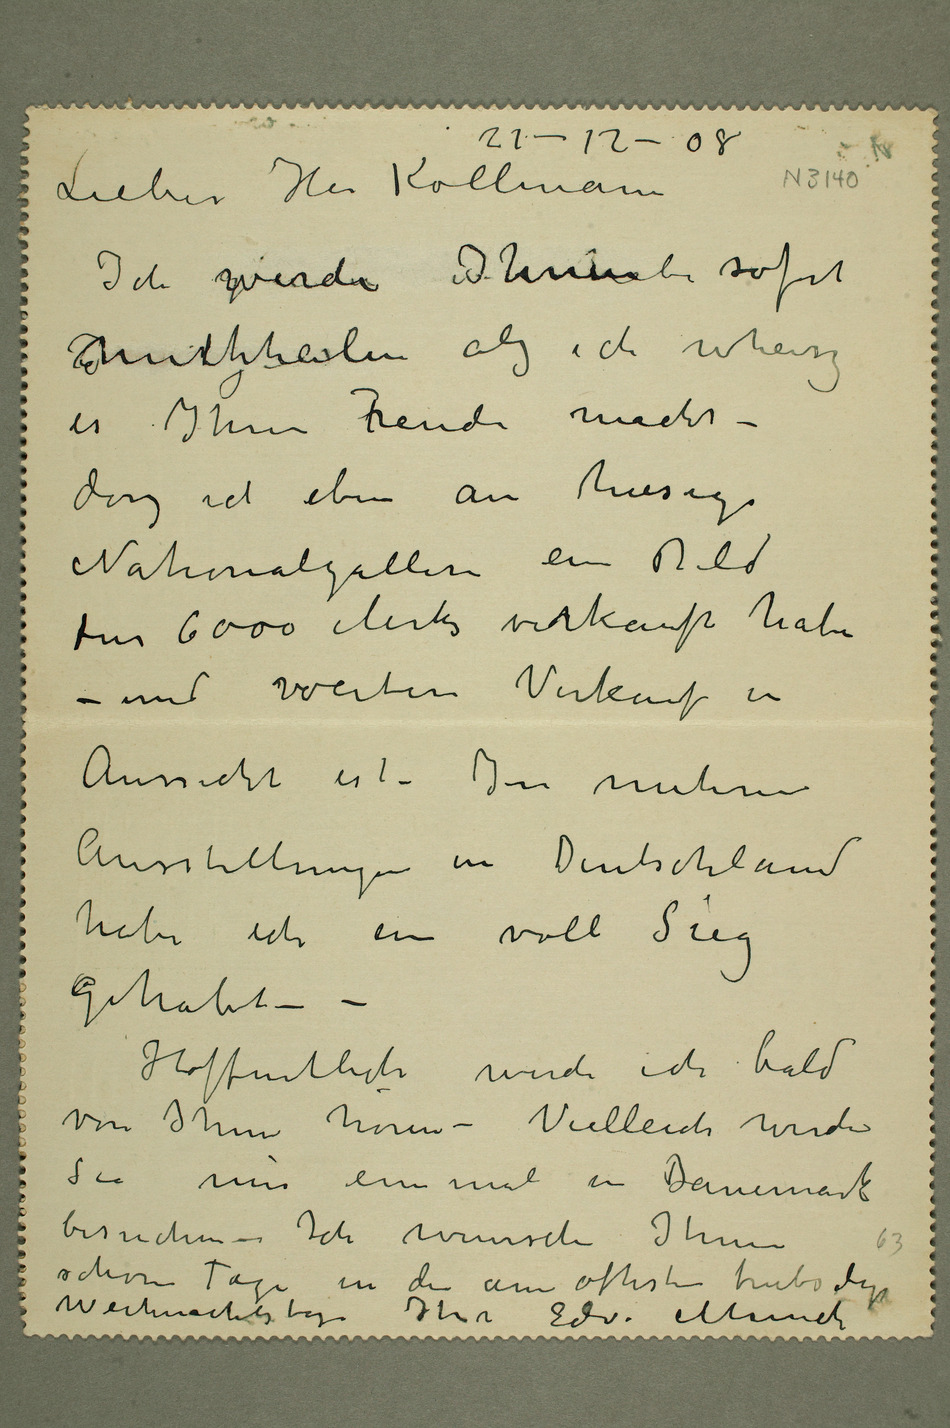 21–12–08
N 3140
Lieber Herr Kollmann
Ich werde Ihnen sofort
mittheilen als ich weisz
es Ihnen Freude macht –
dasz ich eben an hiesige
Nationalgallerie ein Bild
für 6000 Mark verkauft habe
– und weitere Verkauf in
Aussicht ist – In mehrere
Ausstellungen in Deutschland
habe ich ein voll Sieg
gehabt – –
Hoffentlich werde ich bald
von Ihnen hören – Vielleich werde
Sie mir ein mal in Danemark
besuchen – Ich wünsche Ihnen
63
schöne Tage in die am oftesten
Weihnachtstage Ihr Edv. Munch